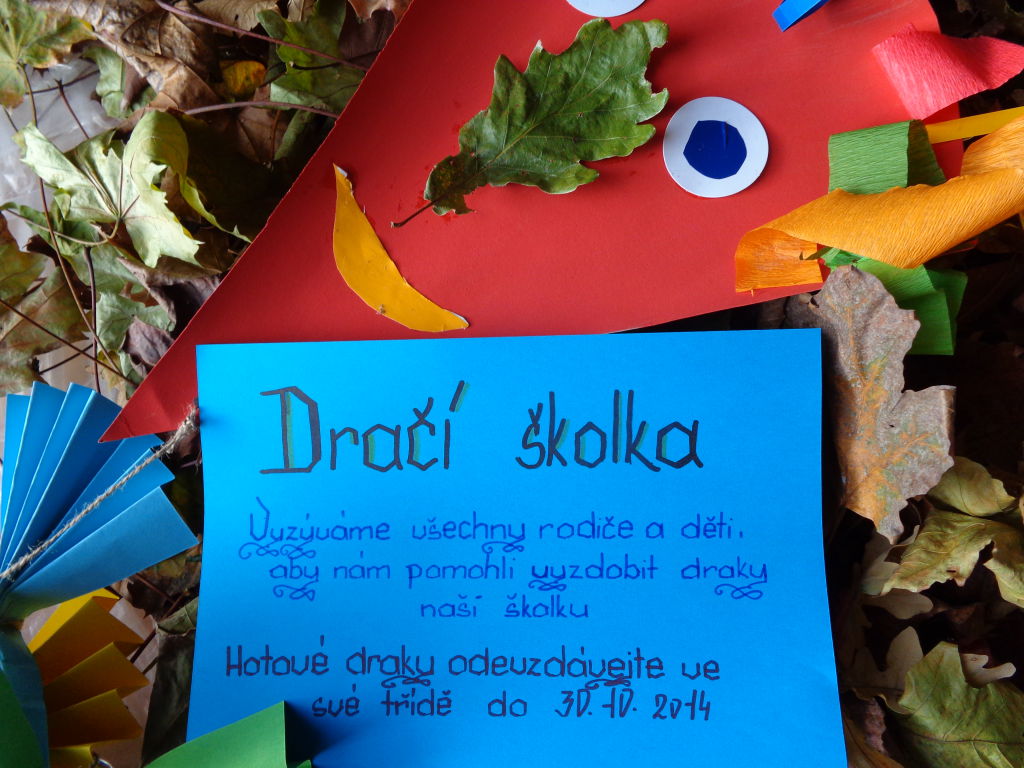 Dračí školka
Vyzýváme všechny rodiče a děti,
aby nám pomohli vyzdobit draky
naší školku
Hotové draky odevzdávejte ve
své třídě do 30. 10. 2014